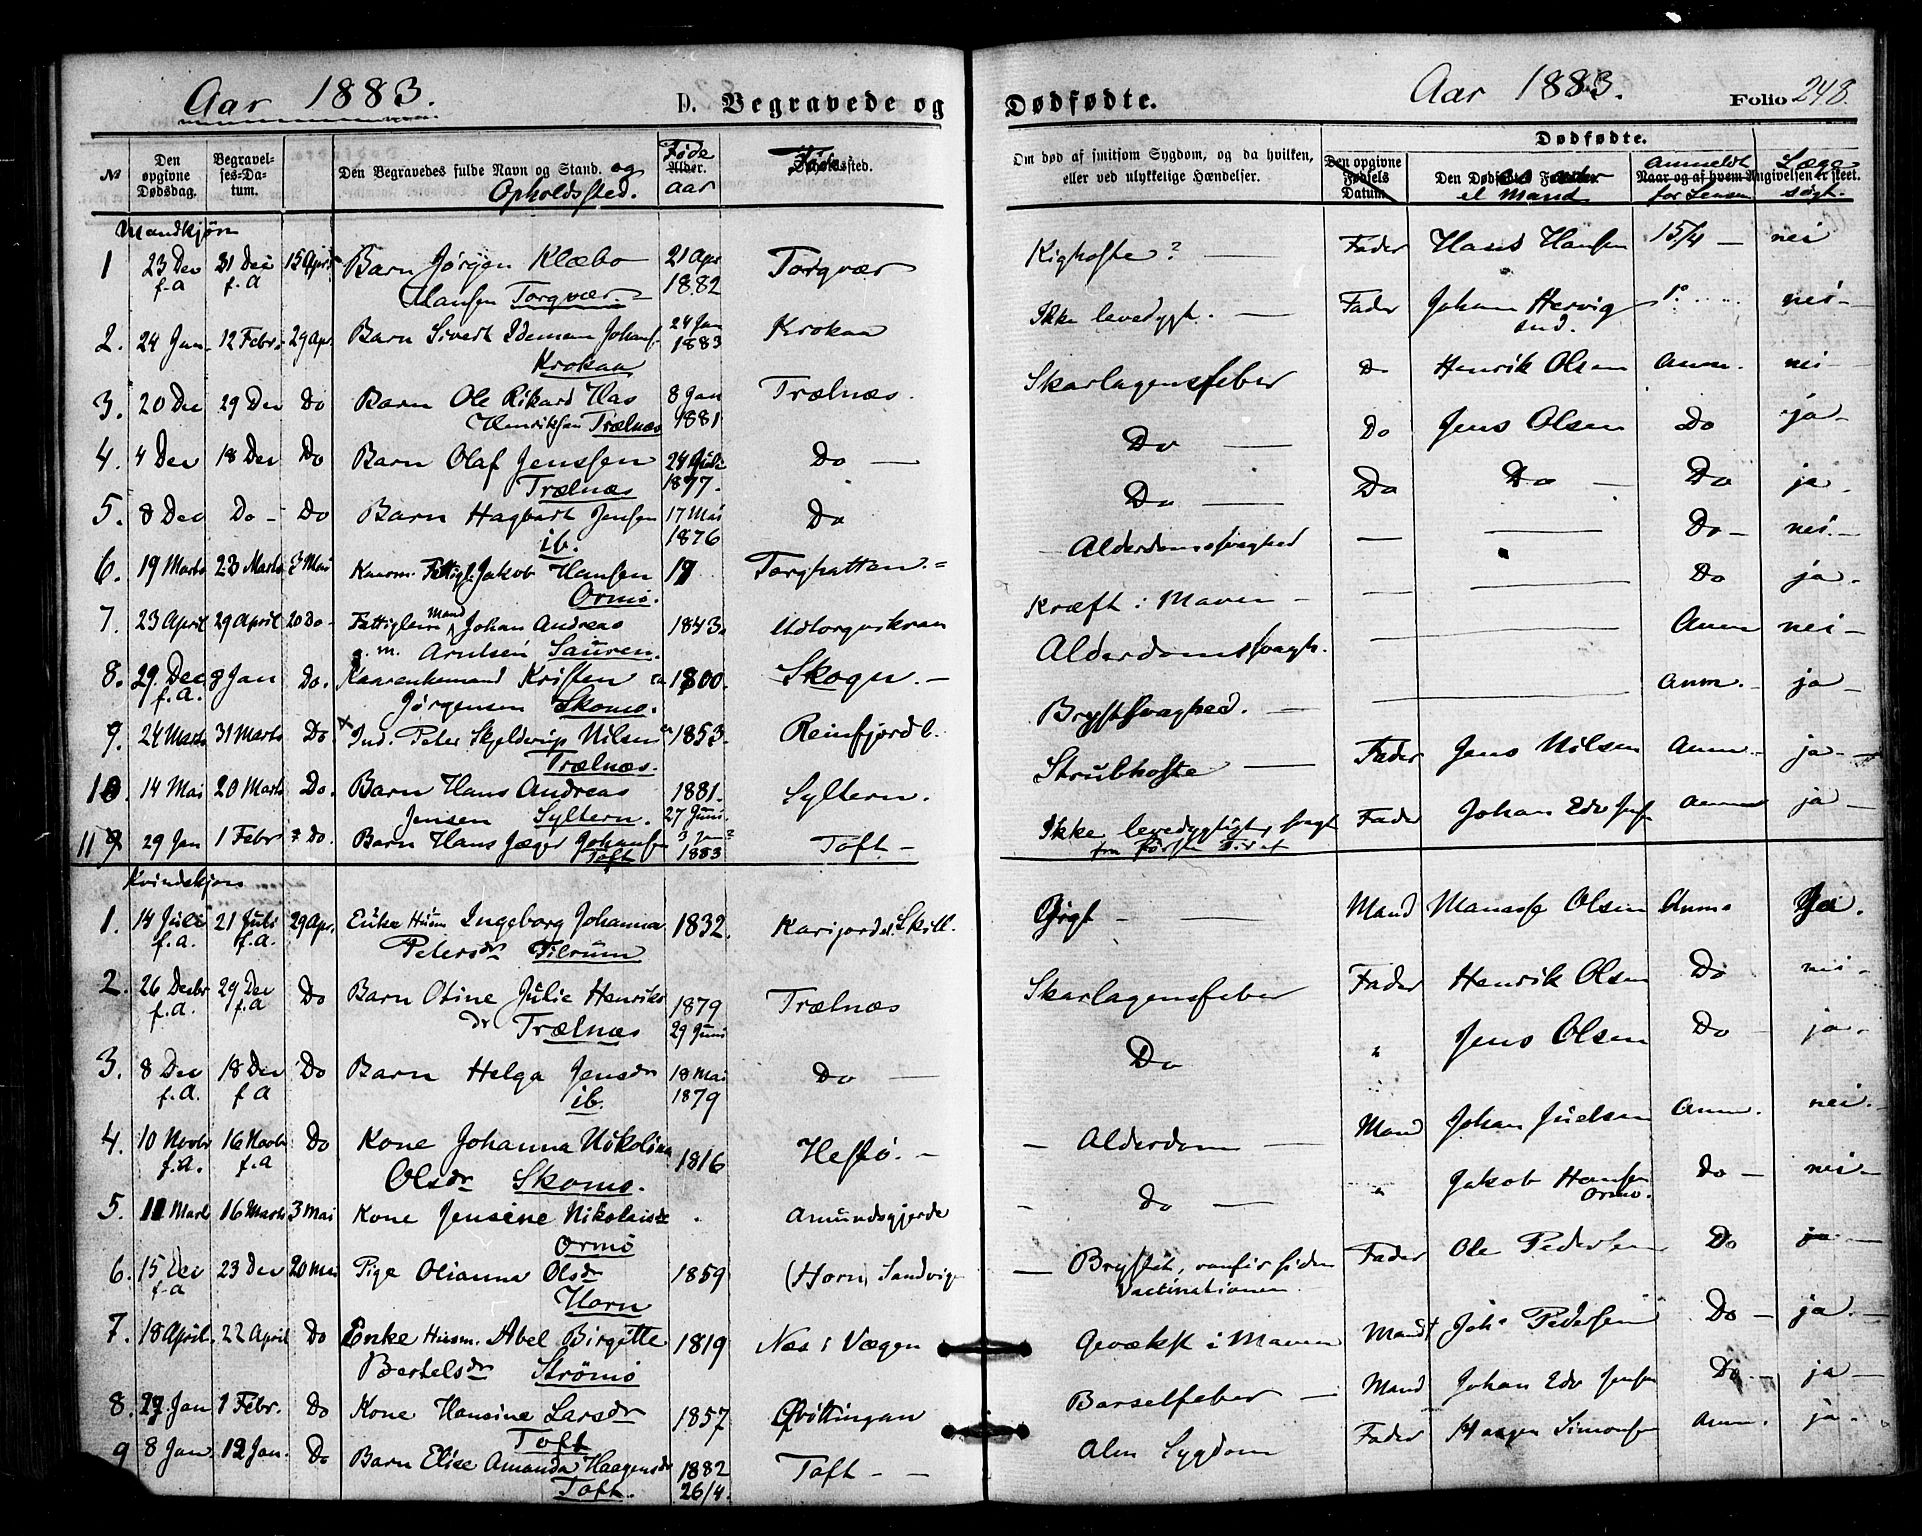 Aar 1883.
D. Begravede og
Dødfødte.
Aar 1883.
Folio 248.
№
Den opgivne Dødsdag.
Begravelses-Datum.
Den Begravedes fulde Navn og Stand. og Opholdssted.
Føde Alder. aar
Føde sted.
Om død af smitsom Sygdom, og da hvilken, eller ved ulykkelige Hændelser.
Dødfødte.
Den opgivne Fødsels Datum.
Den Dødfødtes Fader el Mand
Anmeldt Naar og af hvem Angivelsen er skeet.
Læge søgt.
Mandkjøn
1 23 Dec f.a 31 Dec f.a 15 April Barn Jørgen Klæbo 21 Apr 1882 Torgvær Kighoste? — Fader Hans Hansen 15/4 — nei
Hansen Torgvær.
2. 24 Jan. 12 Febr. 29 Apr. Barn Sivert Ideman Johans. 24 Jan 1883 Krokaa Ikke levedygt. — Fader Johan Hervig nei —
Krokaa
3. 20 Dec 29 Dec Do Barn Ole Rikard Has 8 Jan 1881 Trælnæs. Skarlagensfeber Do Henrik Olsen Anm. nei —
Henriksen Trælnæs
4. 4 Dec 18 Dec Do Barn Olaf Jenssen 24 Juli 1877. Do — Do — Do Jens Olsen Do ja —
Trælnæs
5. 8 Dec Do — Do Barn Hagbart Jensen 17 Mai 1876 Do Do — Do Do — Do ja.
ib.
6. 19 Marts 23 Marts 3 Mai Jakob Hansen Torghatten. Alderdomssvaghed — — Do — nei. —
Ormø.
7. 23 April 29 April 20 Do — Fattiglem Mand Johan Andreas 1843. Udtorgnskran Kræft i Maven — — Do ja.
g. m. Arntsen Sauren.
8. 29 Dec f.a. 8 Jan Do. Kaarenkemand Kristen 1800. Skogn. — Alderdomssvagh. — — Anm nei —
Jørgensen Skomo.
9. 24 Marts 31 Marts Do × Ind. Peter Skjelderup Nilsen 1853. Reinfjord Brystsvaghed. — — Anm. — ja —
Trælnæs.
10. 14 Mai 20 Marts Do. Barn Hans Andreas 1881. 27 Juni. Syltern. Strubhoste — Fader Jens Nilsen Anm — ja —
Jensen Syltern.
11 29 Jan 1 Febr Do. Barn Hans Jæger Johans 3 Jan? 1883 Toft — Ikke levedygtig, svagt Fader Johan Edv Jens Anm ja —
Toft fra Første Stund
Kvindekjøn
1. 14 Juli f.a. 21 Juli f.a. 29 Apr. Enke Husm Ingeborg Johanna 1832. Karijordet. Skill. Gigt — Mand Manasse Olsen Anm Ja.
Petersdr Tilrum
2. 26 Decbr f.a. 29 Dec f.a Do Barn Otine Julie Henriks 1879 29 Juni Trælnæs Skarlagensfeber Fader Henrik Olsen Do nei —
dr Trælnæs
3. 8 Dec f.a. 18 Dec f a Do Barn Helga Jensdr 18 Mai 1879 Do — Do „ Jens Olsen Do — ja.
ib.
4. 10 Novbr f.a. 16 Novbr f.a Do Kone Johanna Nikolina 1816 Hestø. — — Alderdom — Mand Johan Juelsen Anm. nei. —
Olsdr Skomo.
5. 11 Mart 16 Marts 3 Mai Kone Jensine Nikolaisdr Amundsgjerde — Do — „ Jakob Hansen Ormø. Do — nei —
Ormø
6. 15 Dec f.a 23 Dec 20 Mai Pige Olianna Olsdr 1859 (Horn) Sandvig — Brystit, vanfør siden Vaccinationen. Fader Ole Pedersen Do ja —
Horn
7. 18 April. 22 April Do Enke Husm. Abel Birgitte 1819 Næs i Vægen Gevækst i Maven Mand Johs Pedersen Do — ja —
Bertelsdr Strømø
8. 27 Jan 1 Febr. Do Kone Hansine Larsdr 1857. Qvittingan Barselfeber — Mand Johan Edv Jensen Do — ja —
Toft
9 8 Jan 12 Jan. Do Barn Elise Amanda Haagensdr 1882 26/4. Toft — — Alm Sygdom Fader Haagen Simonsen Anm. ja —
Toft.